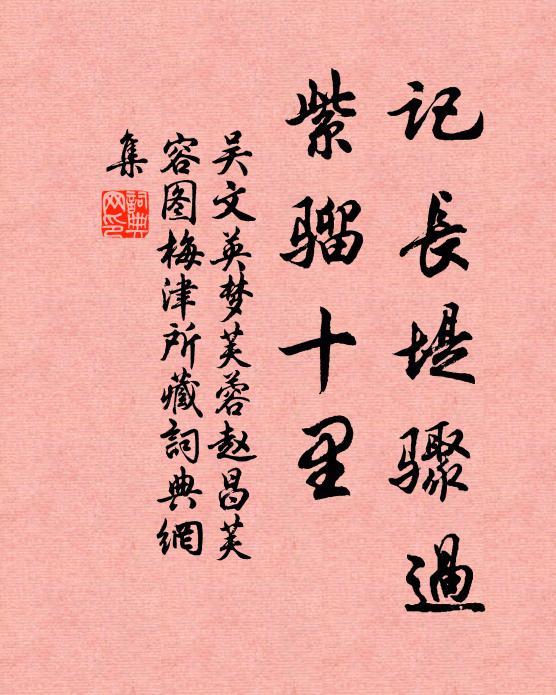 记長堤骤過
紫骝十里
吴文英梦芙蓉赵昌芙
容图梅津所藏詞典網
集
詞典網印